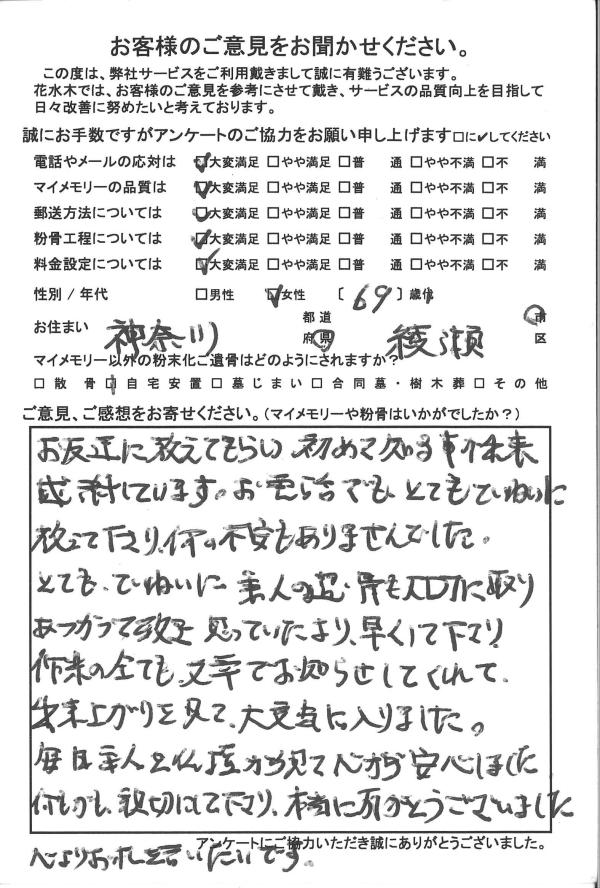 お客様のご意見をお聞かせください。
この度は、弊社サービスをご利用戴きまして誠に有難うございます。
花水木では、お客様のご意見を参考にさせて戴き、サービスの品質向上を目指して
日々改善に努めたいと考えております。
誠にお手数ですがアンケートのご協力をお願い申し上げます□に✓してください
電話やメールの応対は ☑大変満足 □やや満足 □普 通 □やや不満 □不 満
マイメモリーの品質は ☑大変満足 □やや満足 □普 通 □やや不満 □不 満
郵送方法については ☑大変満足 □やや満足 □普 通 □やや不満 □不 満
粉骨工程については ☑大変満足 □やや満足 □普 通 □やや不満 □不 満
料金設定については ☑大変満足 □やや満足 □普 通 □やや不満 □不 満
性別 / 年代 □男性 ☑女性 〔 69 〕歳代
お住まい 神奈川 都 道 府 県 綾瀬 市 区
マイメモリー以外の粉末化ご遺骨はどのようにされますか?
□散 骨 □自宅安置 □墓じまい □合同墓・樹木葬 □その他
ご意見、ご感想をお寄せください。(マイメモリーや粉骨はいかがでしたか?)
お友達に教えてもらい 初めて知る事が出来
感謝しています。お電話でも とてもていねいに
教えて下さり、何の不安もありませんでした。
とても、ていねいに 主人の遺骨も大切に取り
あつかって 思っていたより、早くして下さり
作業の全ても 文章でお知らせしてくれて、
出来上がりを見て、大変気に入りました。
毎日主人と 見て心から安心しました
何もかも、親切にして下さり、本当に有がとうございました
アンケートにご協力いただき誠にありがとうございました。
心よりお礼を言いたいです。